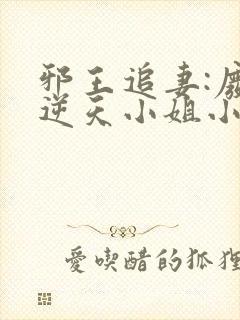 邪王追妻:廢
逆天小姐小
愛喫醋的狐狸